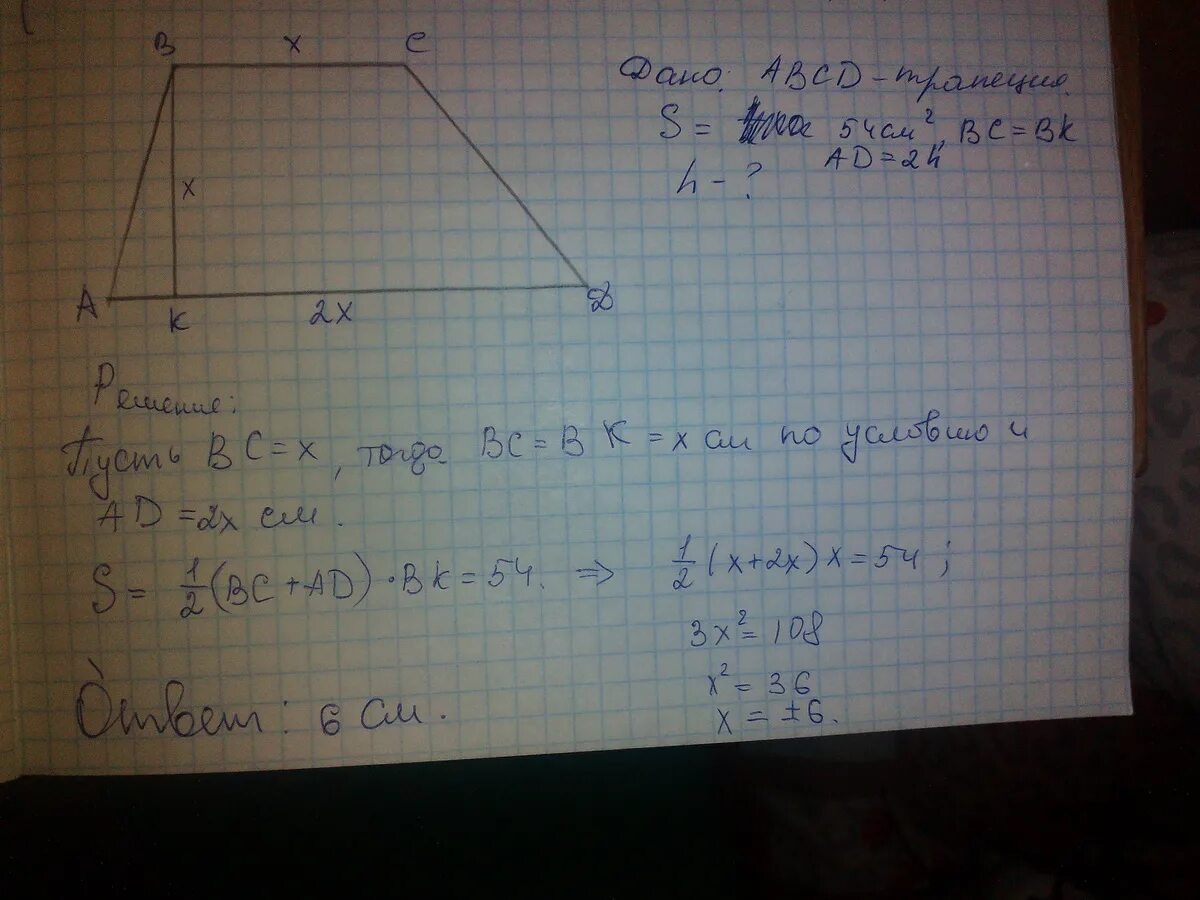 B x C
x
A K 2x D
Дано: ABCD – трапеция.
S = 54 см², BC = BK
AD = 2h
h - ?
Решение:
Пусть BC = x, тогда BC = BK = x см по условию и
AD = 2x см.
S = 1/2 (BC + AD) · BK = 54. ⇒ 1/2 (x + 2x) x = 54;
3x² = 108
x² = 36
x = ±6.
Ответ: 6 см.